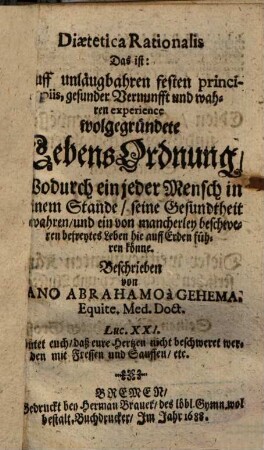 Diætetica Rationalis
Das ist:
uff unläugbahren festen princi-
piis, gesunder Vernunfft und wah-
ren experience
wolgegründete
LebensOrdnung/
Wodurch ein jeder Mensch in
inem Stande/ seine Gesundtheit
wahren/und ein von mancherley beschwe-
ren befreytes Leben hie auff Erden füh-
ren könne.
Beschrieben
von
ANO ABRAHAMO à GEHEMA
Equite. Med. Doct.
Luc. XXI.
ütet euch/daß eure Hertzen nicht beschweret wer-
den mit Fressen und Sauffen/ etc.
BREMEN/
Gedruckt bey Herman Brauer/ des löbl. Gymn. wol
bestalt. Buchdrucker/ Im Jahr 1688.